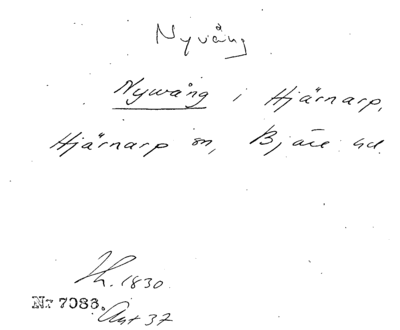 Nyvång
Nywång i Hjärnarp,
Hjärnarp sn, Bjäre hd.
Lh. 1830
Nr 7083. Avt 37